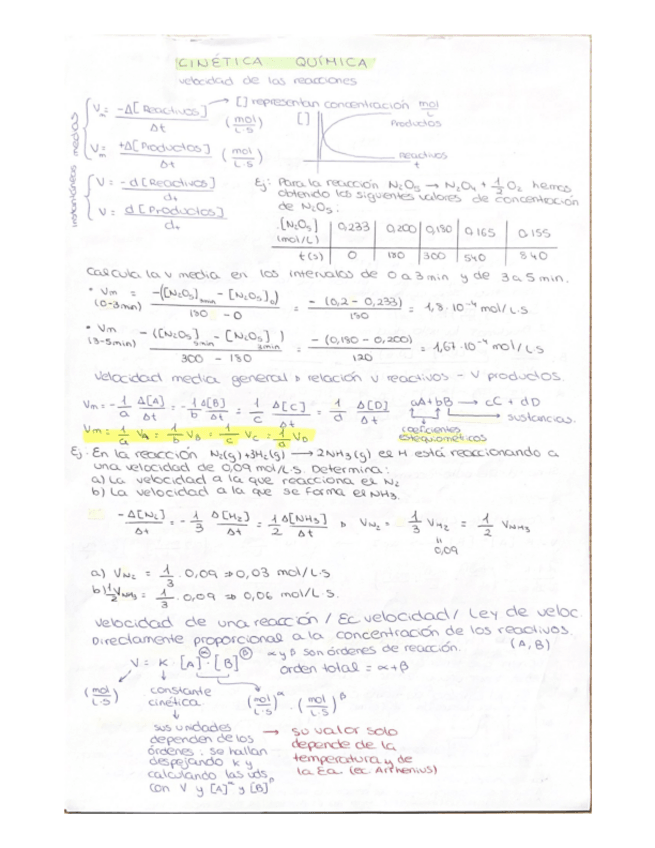 CINÉTICA QUÍMICA
velocidad de las reacciones
instantáneas medias
Vm = -Δ[Reactivos] / Δt (mol/L·S) → [] representan concentración mol/L
Vm = +Δ[Productos] / Δt (mol/L·S)
[] Productos
Reactivos
t
V = -d[Reactivos] / dt
V = d[Productos] / dt
Ej: Para la reacción N2O5 → N2O4 + 1/2 O2 hemos
obtenido los siguientes valores de concentración
de N2O5:
[N2O5] (mol/L) | 0,233 | 0,200 | 0,180 | 0,165 | 0,155
t(s) | 0 | 180 | 300 | 540 | 840
Calcula la v media en los intervalos de 0 a 3 min y de 3 a 5 min.
• Vm (0-3min) = -([N2O5]3min - [N2O5]0) / 180 - 0 = -(0,2 - 0,233) / 180 = 1,8·10⁻⁴ mol/L·S
• Vm (3-5min) -([N2O5]5min - [N2O5]3min) / 300 - 180 = -(0,180 - 0,200) / 120 = 1,67·10⁻⁴ mol/L·S
Velocidad media general → relación v reactivos - v productos.
Vm = -1/a Δ[A]/Δt = -1/b Δ[B]/Δt = 1/c Δ[C]/Δt = 1/d Δ[D]/Δt aA + bB → cC + dD
sustancias.
Vm = 1/a VA = 1/b VB = 1/c VC = 1/d VD
coeficientes
estequiométricos
Ej: En la reacción N2(g) + 3H2(g) → 2NH3(g) el H está reaccionando a
una velocidad de 0,09 mol/L·S. Determina:
a) La velocidad a la que reacciona el N2
b) La velocidad a la que se forma el NH3.
-Δ[N2]/Δt = -1/3 Δ[H2]/Δt = 1/2 Δ[NH3]/Δt → VN2 = 1/3 VH2 = 1/2 VNH3
0,09
a) VN2 = 1/3 · 0,09 ⇒ 0,03 mol/L·S
b) 1/2 VNH3 = 1/3 · 0,09 ⇒ 0,06 mol/L·S.
Velocidad de una reacción / Ec velocidad / Ley de veloc.
Directamente proporcional a la concentración de los reactivos.
(A, B)
V = K · [A]^α · [B]^β α y β son órdenes de reacción.
orden total = α + β
(mol/L·S) constante cinética (mol/L·S)^α · (mol/L·S)^β
sus unidades
dependen de los
órdenes. Se hallan
despejando K y
calculando las uds.
con V y [A]^α y [B]^β
→ su valor solo
depende de la
temperatura y de
la Ea. (ec. Arrhenius)